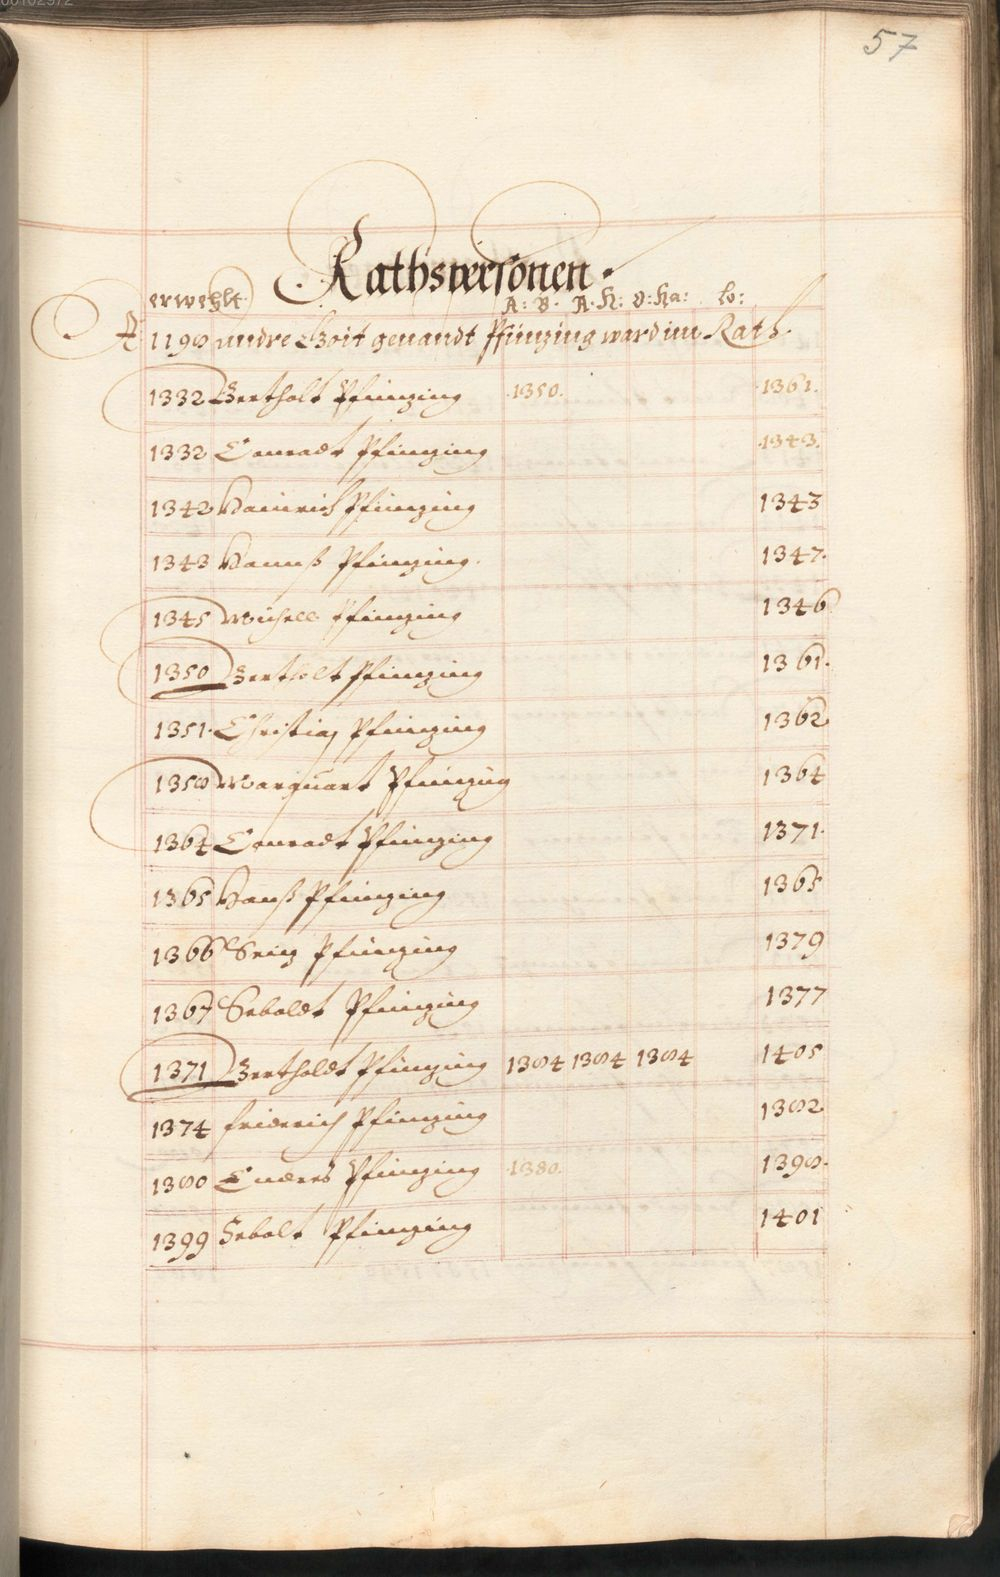 57
Rathspersonen.
erwehlt. A: B. A. H: O: Ha: lo:
A 1198 undre Geit genandt Pfinzing ward im Rath.
1332 Bertholt Pfinzing 1350. 1361.
1332 Conradt Pfinzing 1343.
1342 Hainrich Pfinzing 1343
1343 Hannß Pfinzing. 1347.
1345 Michell Pfinzing 1346
1350 Bertholt Pfinzing 1361.
1351. Christian Pfinzing 1362
1358 Marquart Pfinzing 1364
1364 Conradt Pfinzing 1371.
1365 Hanß Pfinzing 1365
1366 Seiz Pfinzing 1379
1367 Seboldt Pfinzing 1377
1371 Bertholdt Pfinzing 1384 1384 1384 1405
1374 friderich Pfinzing 1382
1380 Enderes Pfinzing 1380. 1398.
1399 Sebolt Pfinzing 1401